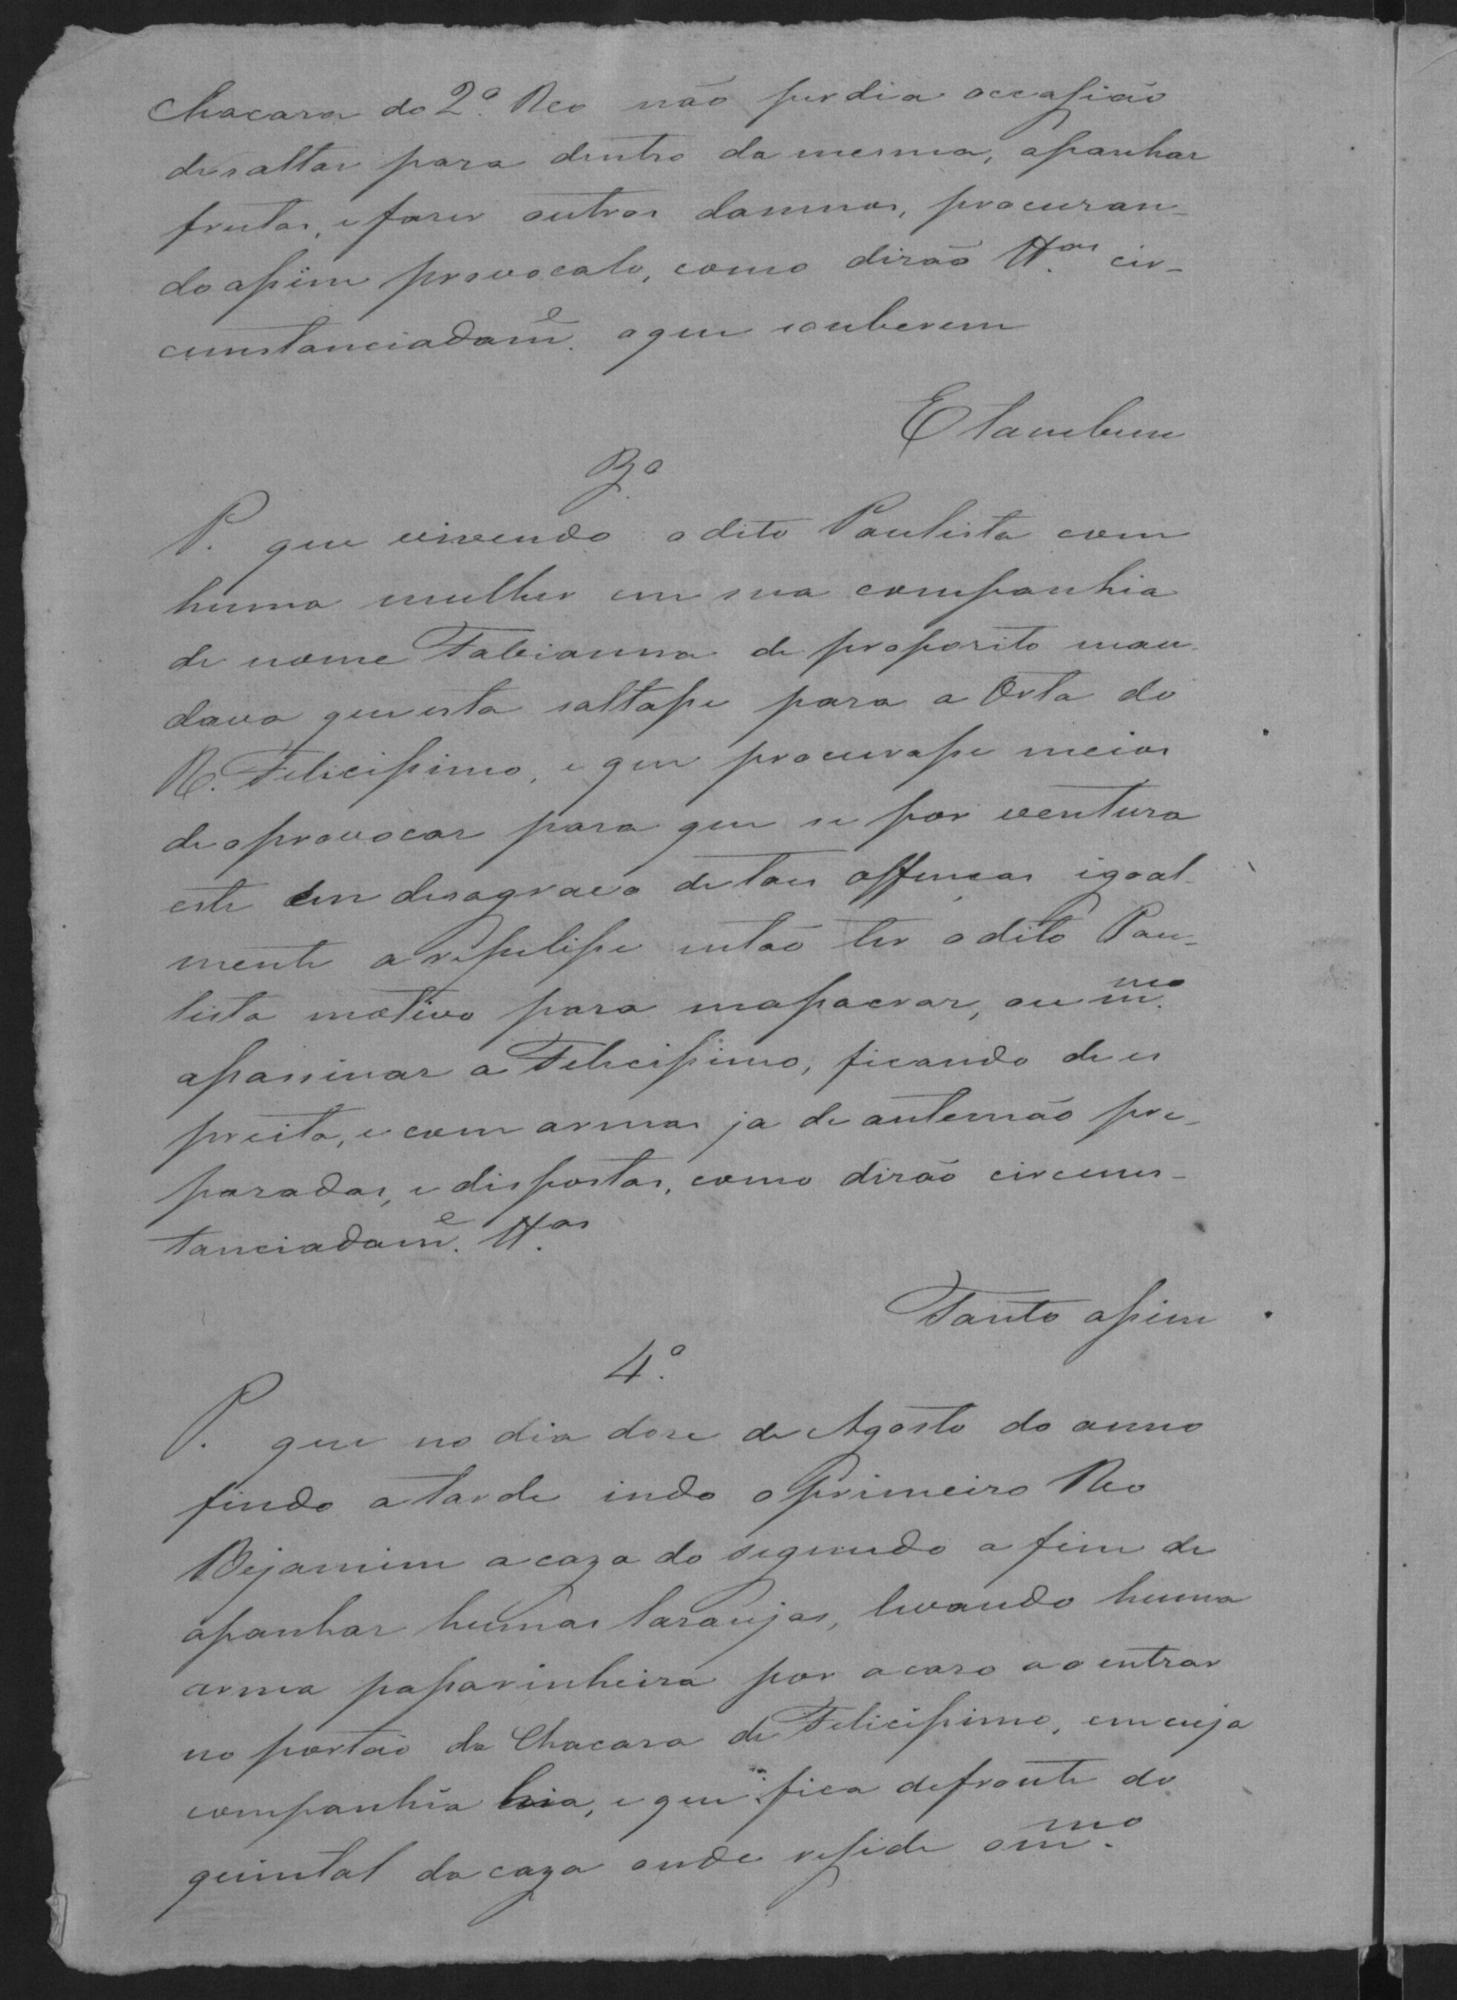 Chacara do 2.º Reo não perdia occasião
desaltar para dentro da mesma, apanhar
frutas, efaser outros damnos, procuran-
do assim provocalo, como dirão tt.as cir-
cunstanciadam.e oque souberem
E tambem
3.º
P. que vivendo odito Paulista com
huma mulher em sua companhia
de nome Fabianna de proposito man-
dava queesta saltasse para a Orta do
R. Felicissimo, e que procurasse meios
de oprovocar para que se por ventura
este em desagravo detaes offensas igoal-
mente arepelisse então ter odito Pau-
lista motivo para massacrar, ou m.mo
assassinar a Felicissimo, ficando de es
preita, e com armas ja de antemão pre-
paradas, e dispostas, como dirão circuns-
tanciadam.e tt.as
Tanto assim
4.º
P. que no dia dose de Agosto do anno
findo atarde indo oprimeiro Reo
Bejamim acaza do segundo a fim de
apanhar humas laranjas, levando huma
arma passarinheira por acaso ao entrar
no portão da Chacara de Felicissimo, emcuja
companhia hia, e que fica defronte do
quintal da caza onde reside om.mo